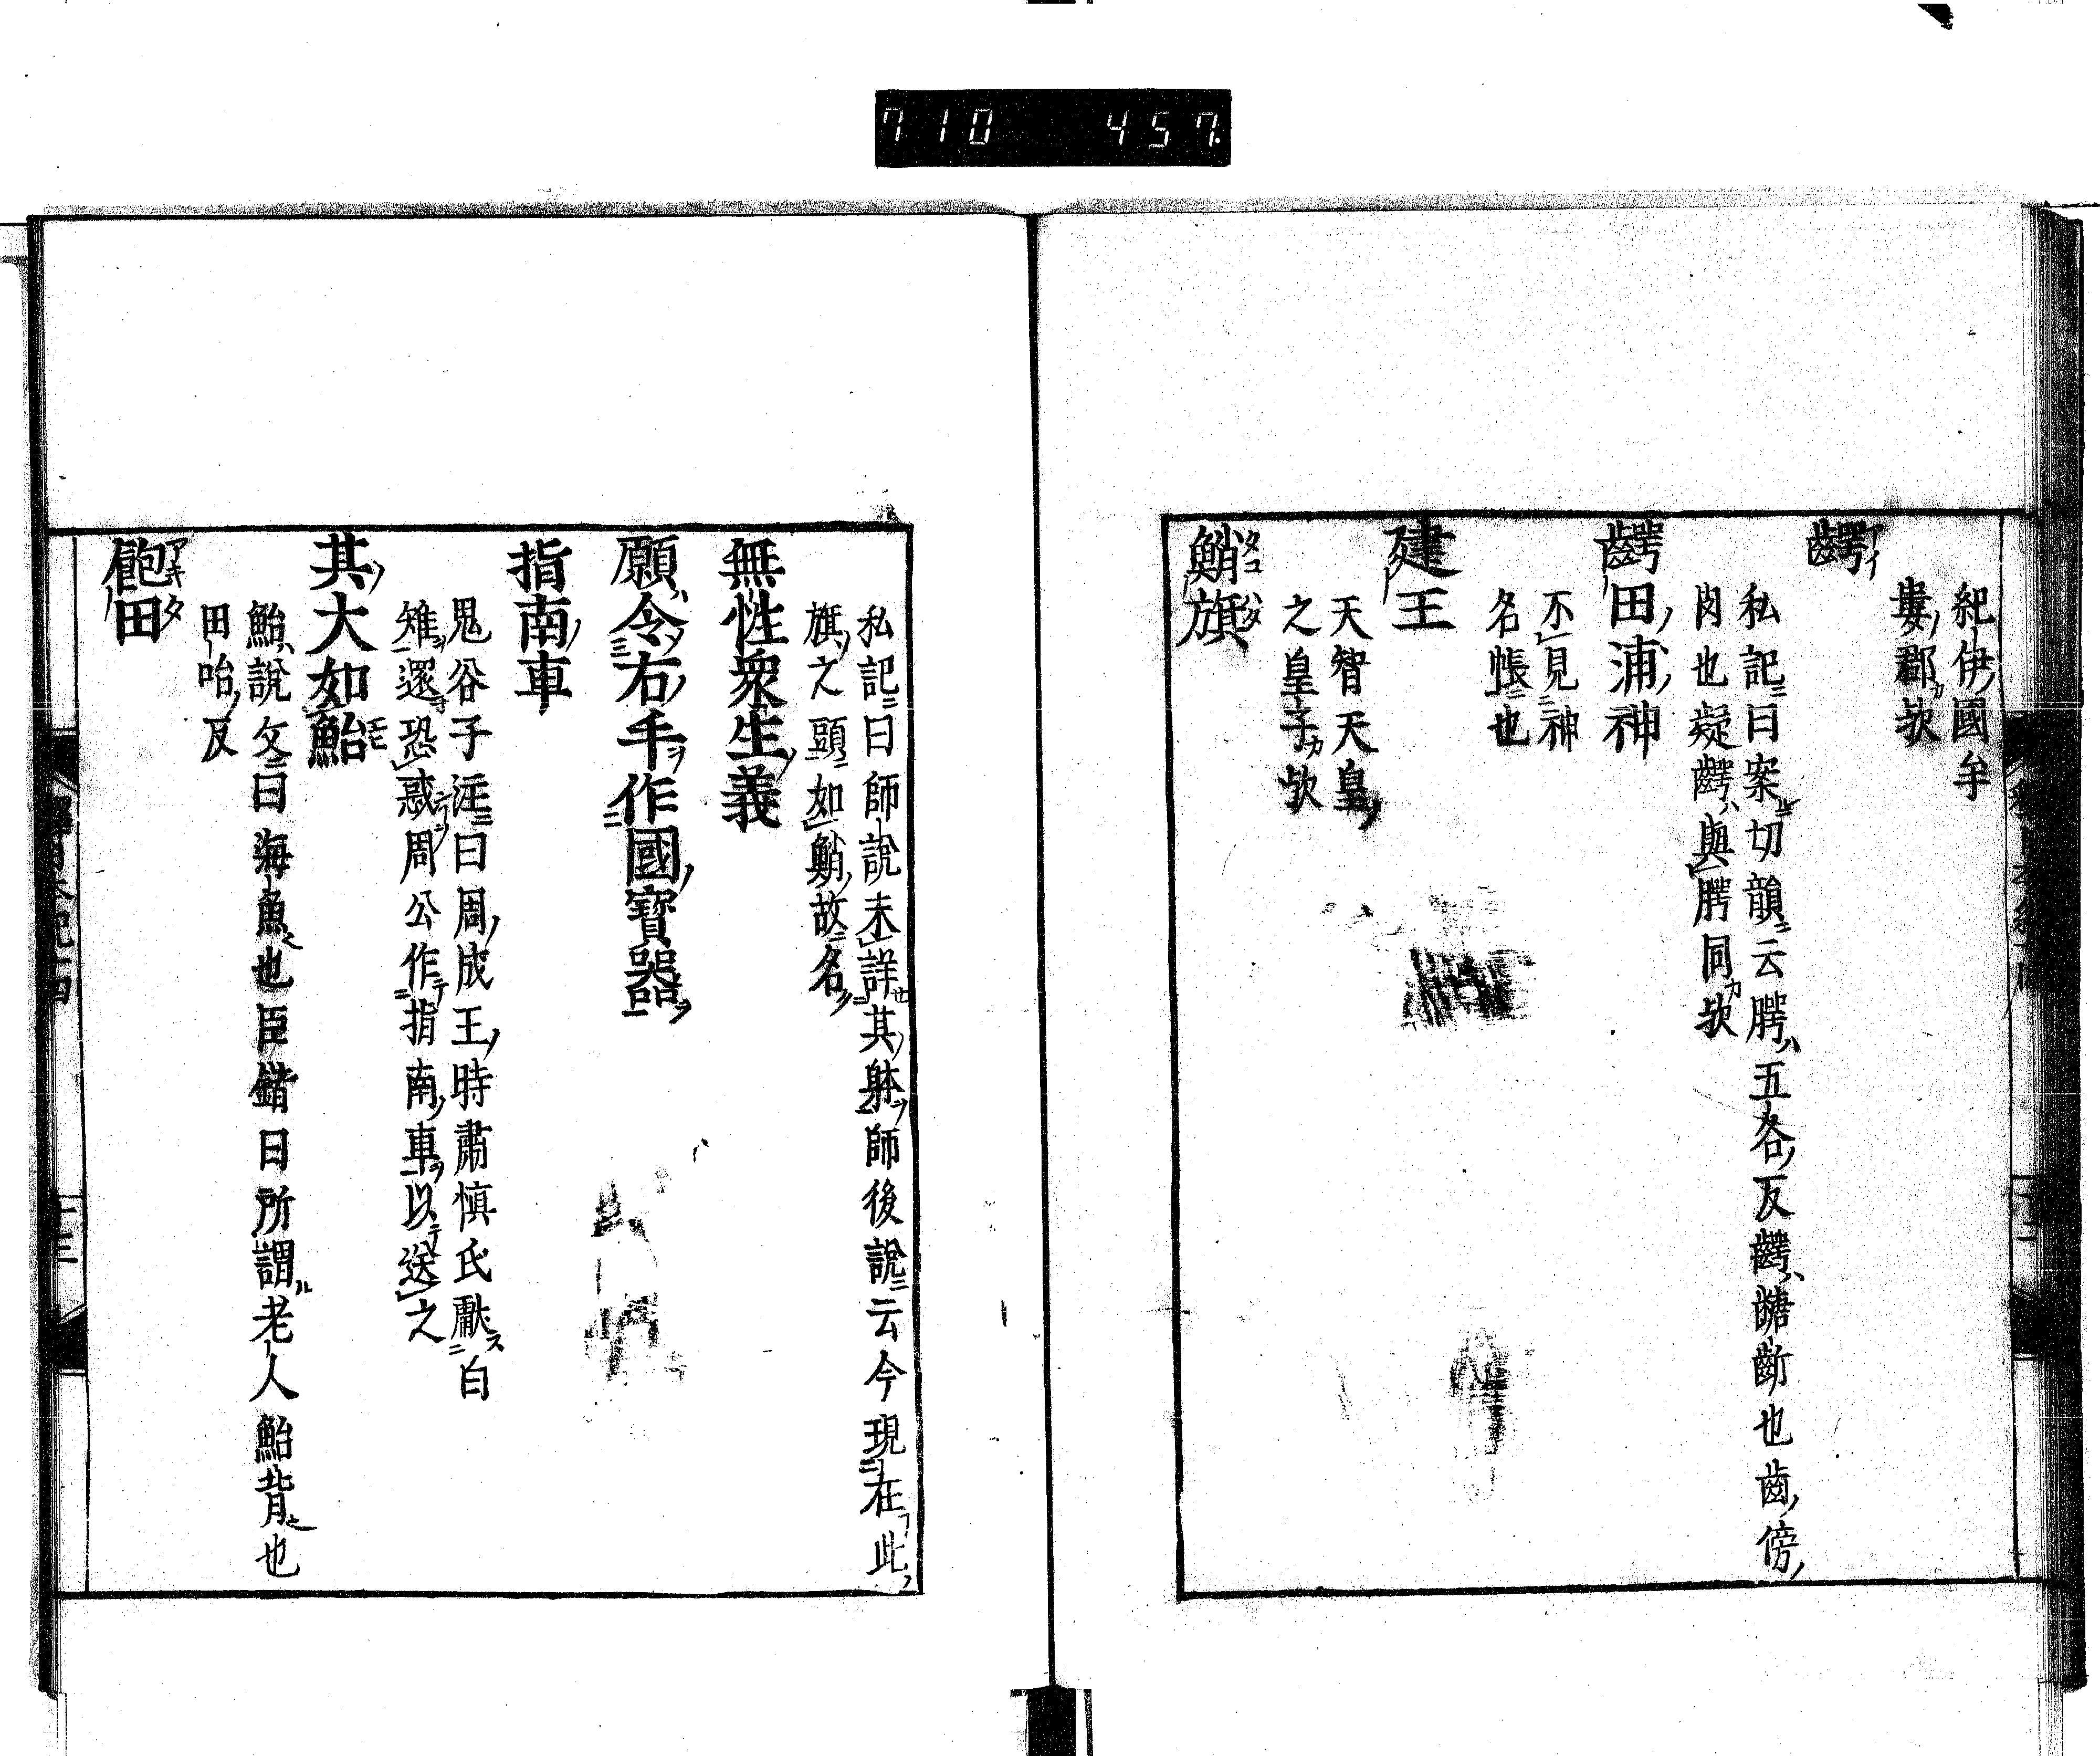 710 457
紀伊國牟
婁郡欤
齶
私記曰案切韻云腭五各反齶齗也齒傍
肉也疑齶與腭同欤
齶田浦神
不見神
名帳也
建王
天智天皇
之皇子欤
鮹旗
私記曰師説未詳其躰師後說云今現在此
旗之頭如鮹故名
無性衆生義
願令右手作國寶器
指南車
鬼谷子注曰周成王時肅慎氏獻白
雉還恐惑周公作指南車以送之
其大如鮐
鮐說文曰海魚也臣鍇曰所謂老人鮐背也
田咍反
飽田